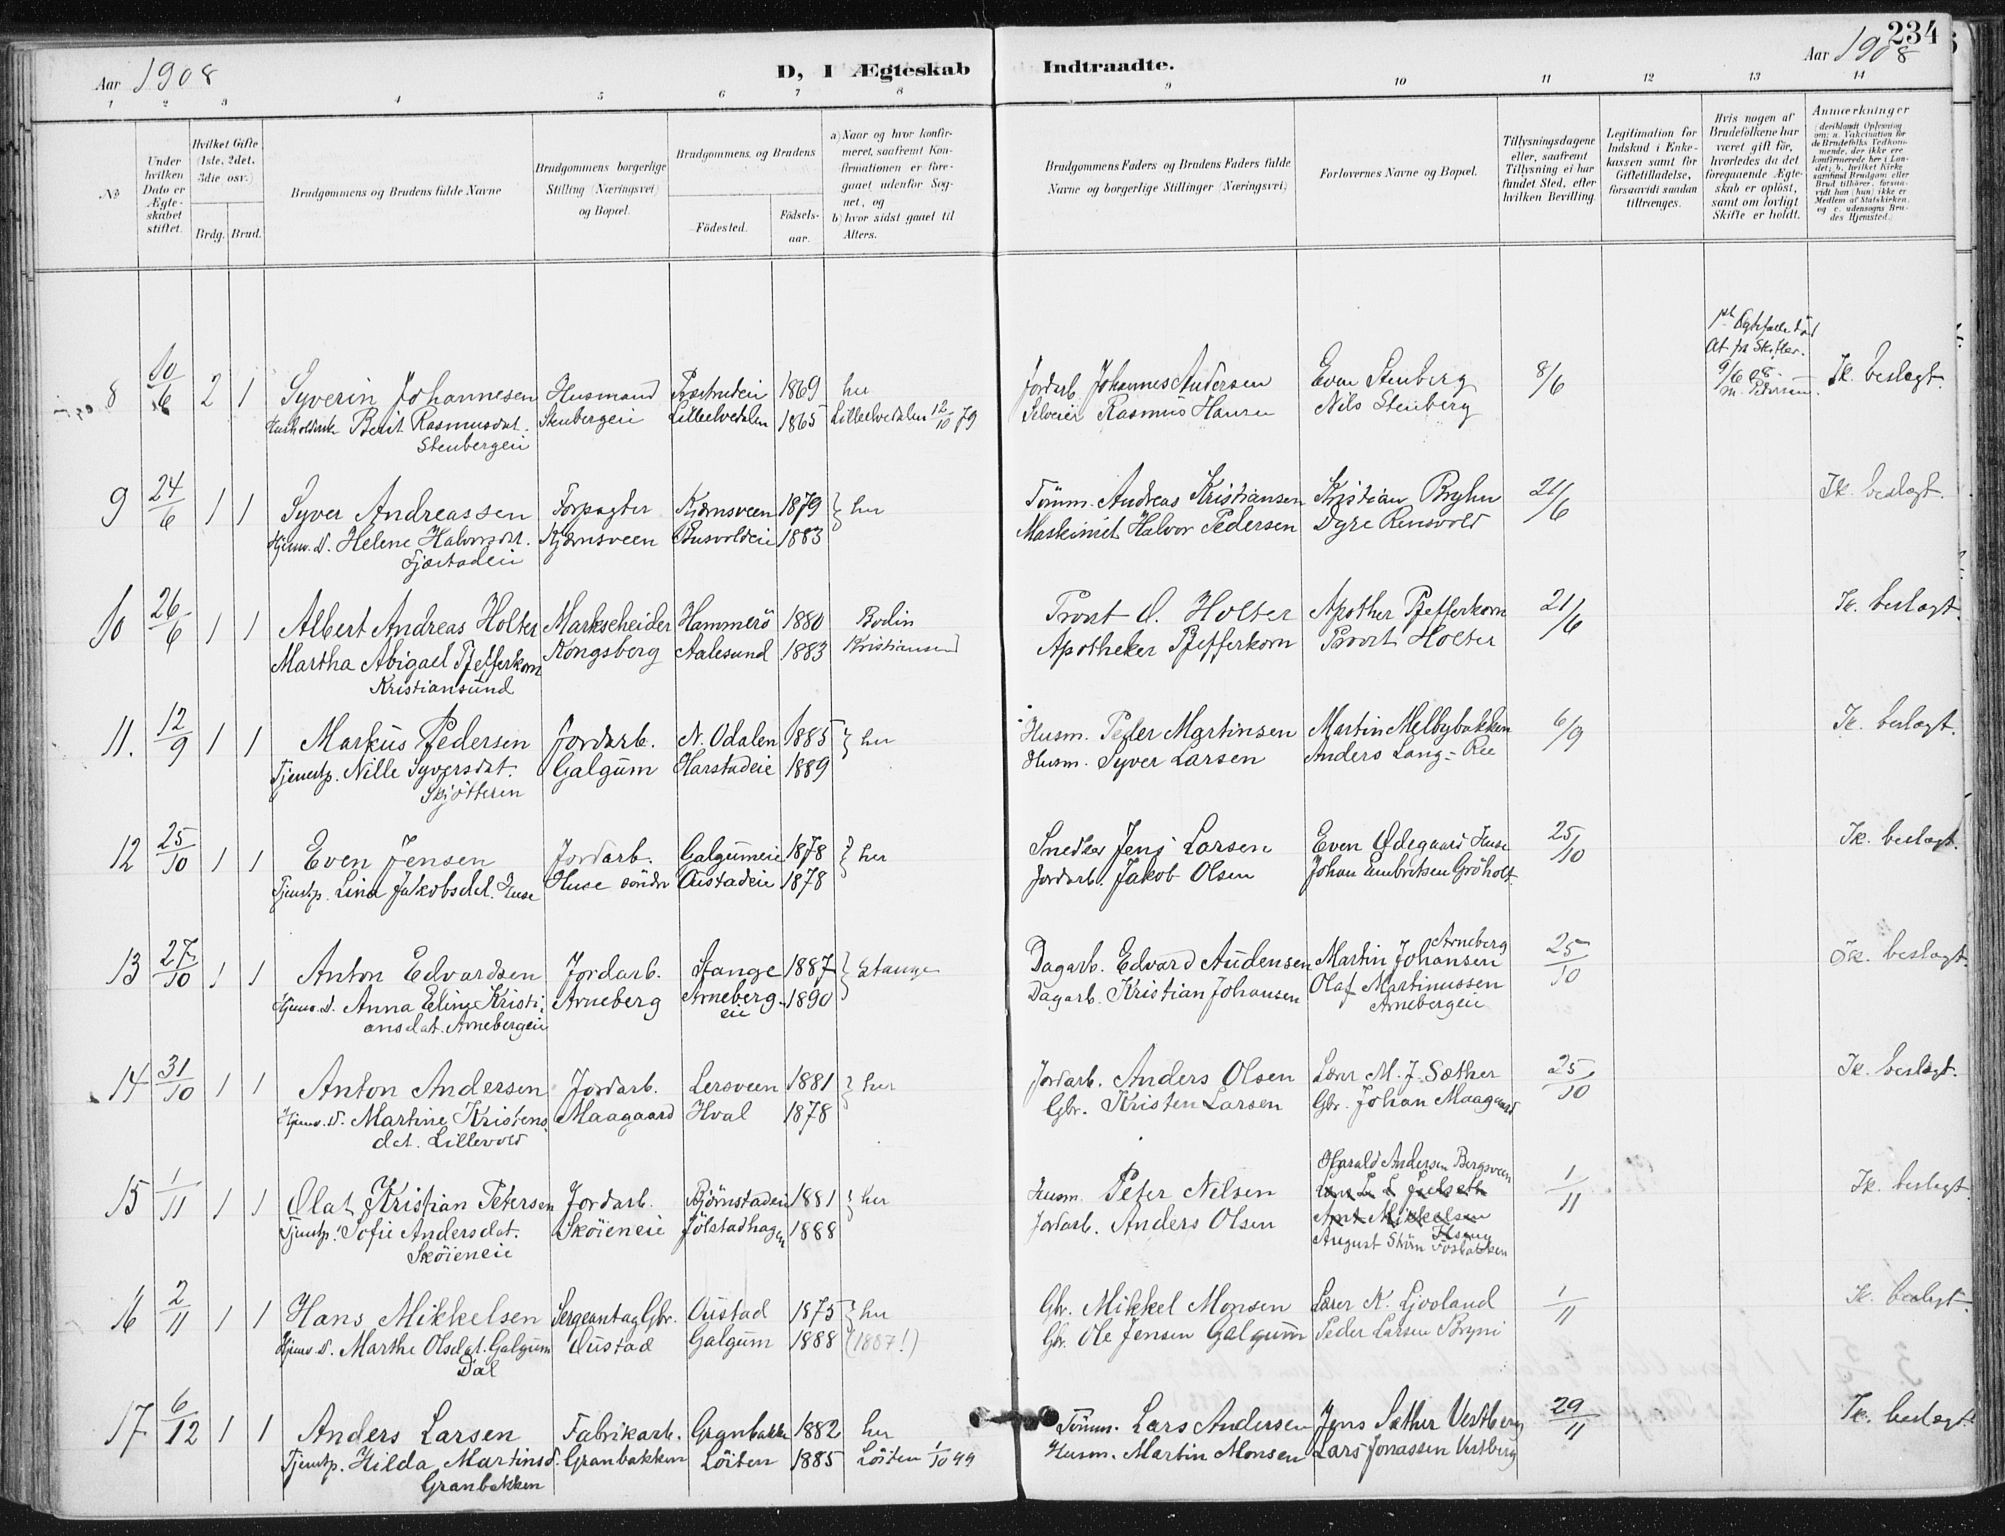 234
Aar 1908 D, I Ægteskab Indtraadte. Aar 1908
1 2 3 4 5 6 7 8 9 10 11 12 13 14
No
Under hvilken Dato er Ægteskabet stiftet.
Hvilket Gifte (1ste, 2det, 3die osv.)
Brdg. Brud.
Brudgommens og Brudens fulde Navne
Brudgommens borgerlige Stilling (Næringsvei) og Bopæl.
Brudgommens og Brudens
Födested. Födselsaar.
a) Naar og hvor konfirmeret, saafremt Konfirmationen er foregaaet udenfor Sognet, og
b) hvor sidst gaaet til Alters.
Brudgommens Faders og Brudens Faders fulde Navne og borgerlige Stillinger (Næringsvei)
Forlovernes Navne og Bopæl.
Tillysningsdagene eller, saafremt Tillysning ei har fundet Sted, efter hvilken Bevilling.
Legitimation for Indskud i Enkekassen samt for Giftetilladelse, forsaavidt saadan tiltrænges.
Hvis nogen af Brudefolkene har været gift för, hvorledes da det foregaaende Ægteskab er oplöst, samt om lovligt Skifte er holdt.
Anmærkninger
8 10/6 2 1 Syverin Johannesen Husmand 1869 her Jordarb. Johannes Andersen Even Stenberg 8/6 Ik. beslægt.
Berit Rasmusdat. Stenbergeie Lilleelvedalen 1865 Lilleelvedalen 12/10 79 Selveier Rasmus Hansen Nils Stenberg
Stenbergeie
9/6 08
9 24/6 1 1 Syver Andreassen Forpagter Kjernsveen 1879 } her Tömm. Andreas Kristiansen Kristian Bryhn 21/6 Ik. beslægt.
Hjemv. D. Helene Halvorsdat. Kjernsveen 1883 Maskinist Halvor Pedersen Dyre Rensvold
10 26/6 1 1 Albert Andreas Holter Markscheider Hammerö 1880 Bodin Provst O. Holter Apother Pfefferkorn 21/6 Ik. beslægt.
Martha Abigael Pfefferkorn Kongsberg Aalesund 1883 Kristiansund Apotheker Pfefferkorn Provst Holter
Kristiansund
11. 12/9 1 1 Markus Pedersen Jordarb. N. Odalen 1885 } her Husm. Peder Martinsen Martin Melbybakken 6/9 Ik. beslægt.
Tjenestp. Nille Syversdat. Galgum Harstadeie 1889 Husm. Syver Larsen Anders Lang-Ree
Skjötteren
12 25/10 1 1 Even Jensen Jordarb. Galgumeie 1878 } her Snedker Jens Larsen Even Ødegaard Huse 25/10 Ik. beslægt.
Tjenestp. Lina Jakobsdat. Huse Huse söndre Oustadeie 1878 Jordarb. Jakob Olsen Johan Embretsen Gröholt
13 27/10 1 1 Anton Edvardsen Jordarb. Stange 1887 } Stange Dagarb. Edvard Audensen Martin Johansen Arneberg 25/10 Ik. beslægt.
Hjemv. D. Anna Eline Kristi- Arneberg Arneberg- 1890 Dagarb. Kristian Johansen Olaf Martinussen
ansdat. Arnebergeie eie Arnebergeie
14 31/10 1 1 Anton Andersen Jordarb. Lersveen 1881 } her Jordarb. Anders Olsen Lærer M. J. Sæther 25/10 Ik. beslægt.
Hjemv. D. Martine Kristens Maagaard Hval 1878 Gbr. Kristen Larsen Gbr. Johan Maagaard
dat. Lillevold
15 1/11 1 1 Olaf Kristian Petersen Jordarb. Björnstadeie 1881 } her Husm. Peter Nilsen Harald Andersen Bergsveen 1/11 Ik. beslægt.
Tjenestp. Sofie Andersdat. Sköieneie Jölstadhagen 1888 Jordarb. Anders Olsen
Sköieneie
16 2/11 1 1 Hans Mikkelsen Sergeant og Gbr. Oustad 1875 } her Gbr. Mikkel Monsen Lærer K. Ljooland 1/11 Ik. beslægt.
Hjemv. D. Marthe Olsdat. Galgum Oustad Galgum 1888 (1887!) Gbr. Ole Jensen Galgum Peder Larsen Bryni
Dal
17 6/12 1 1 Anders Larsen Fabrikarb. Granbakken 1882 her Tömm. Lars Andersen Jens Sæther Vestberg 29/11 Ik. beslægt.
Tjenestp. Hilda Martinsd. Granbakken Löiten 1885 Löiten 1/10 99 Husm. Martin Monsen Lars Jonassen Vestberg
Granbakken